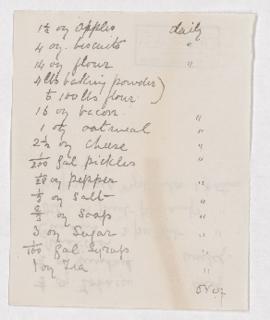 1½ oz apples daily
4 oz. biscuits "
14 oz flour "
4 lbs baking powder)
to 100 lbs flour)
16 oz bacon "
1 oz oatmeal "
2½ oz cheese "
1/200 gal pickles "
oz pepper "
oz Salt "
oz Soap "
3 oz Sugar "
1/100 gal Syrup "
oz Tea "
over